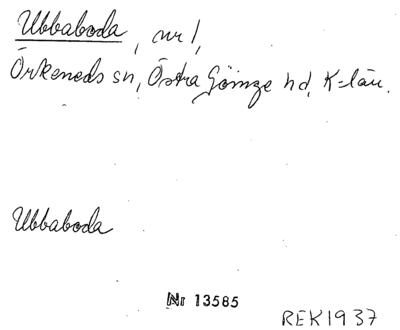 Ubbaboda, nr 1,
Örkeneds sn, Östra Göinge hd, K-län.
Ubbaboda
Nr 13585
REK1937